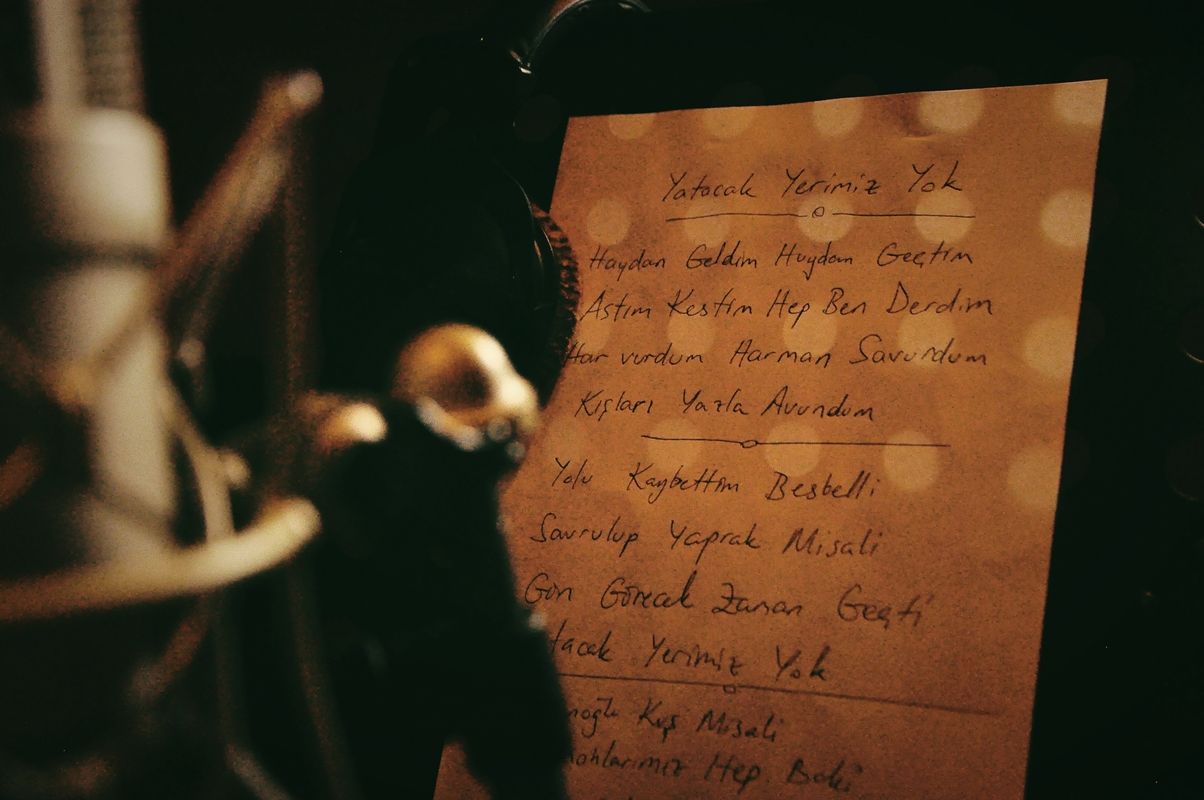 Yatacak Yerimiz Yok
Haydan Geldim Huydan Geçtim
Astım Kestim Hep Ben Derdim
Har vurdum Harman Savurdum
Kışları Yazla Avundum
Yolu Kaybettim Besbelli
Savrulup Yaprak Misali
Gün Görecek Zaman Geçti
tacak Yerimiz Yok
Kuş Misali
Hep Baki